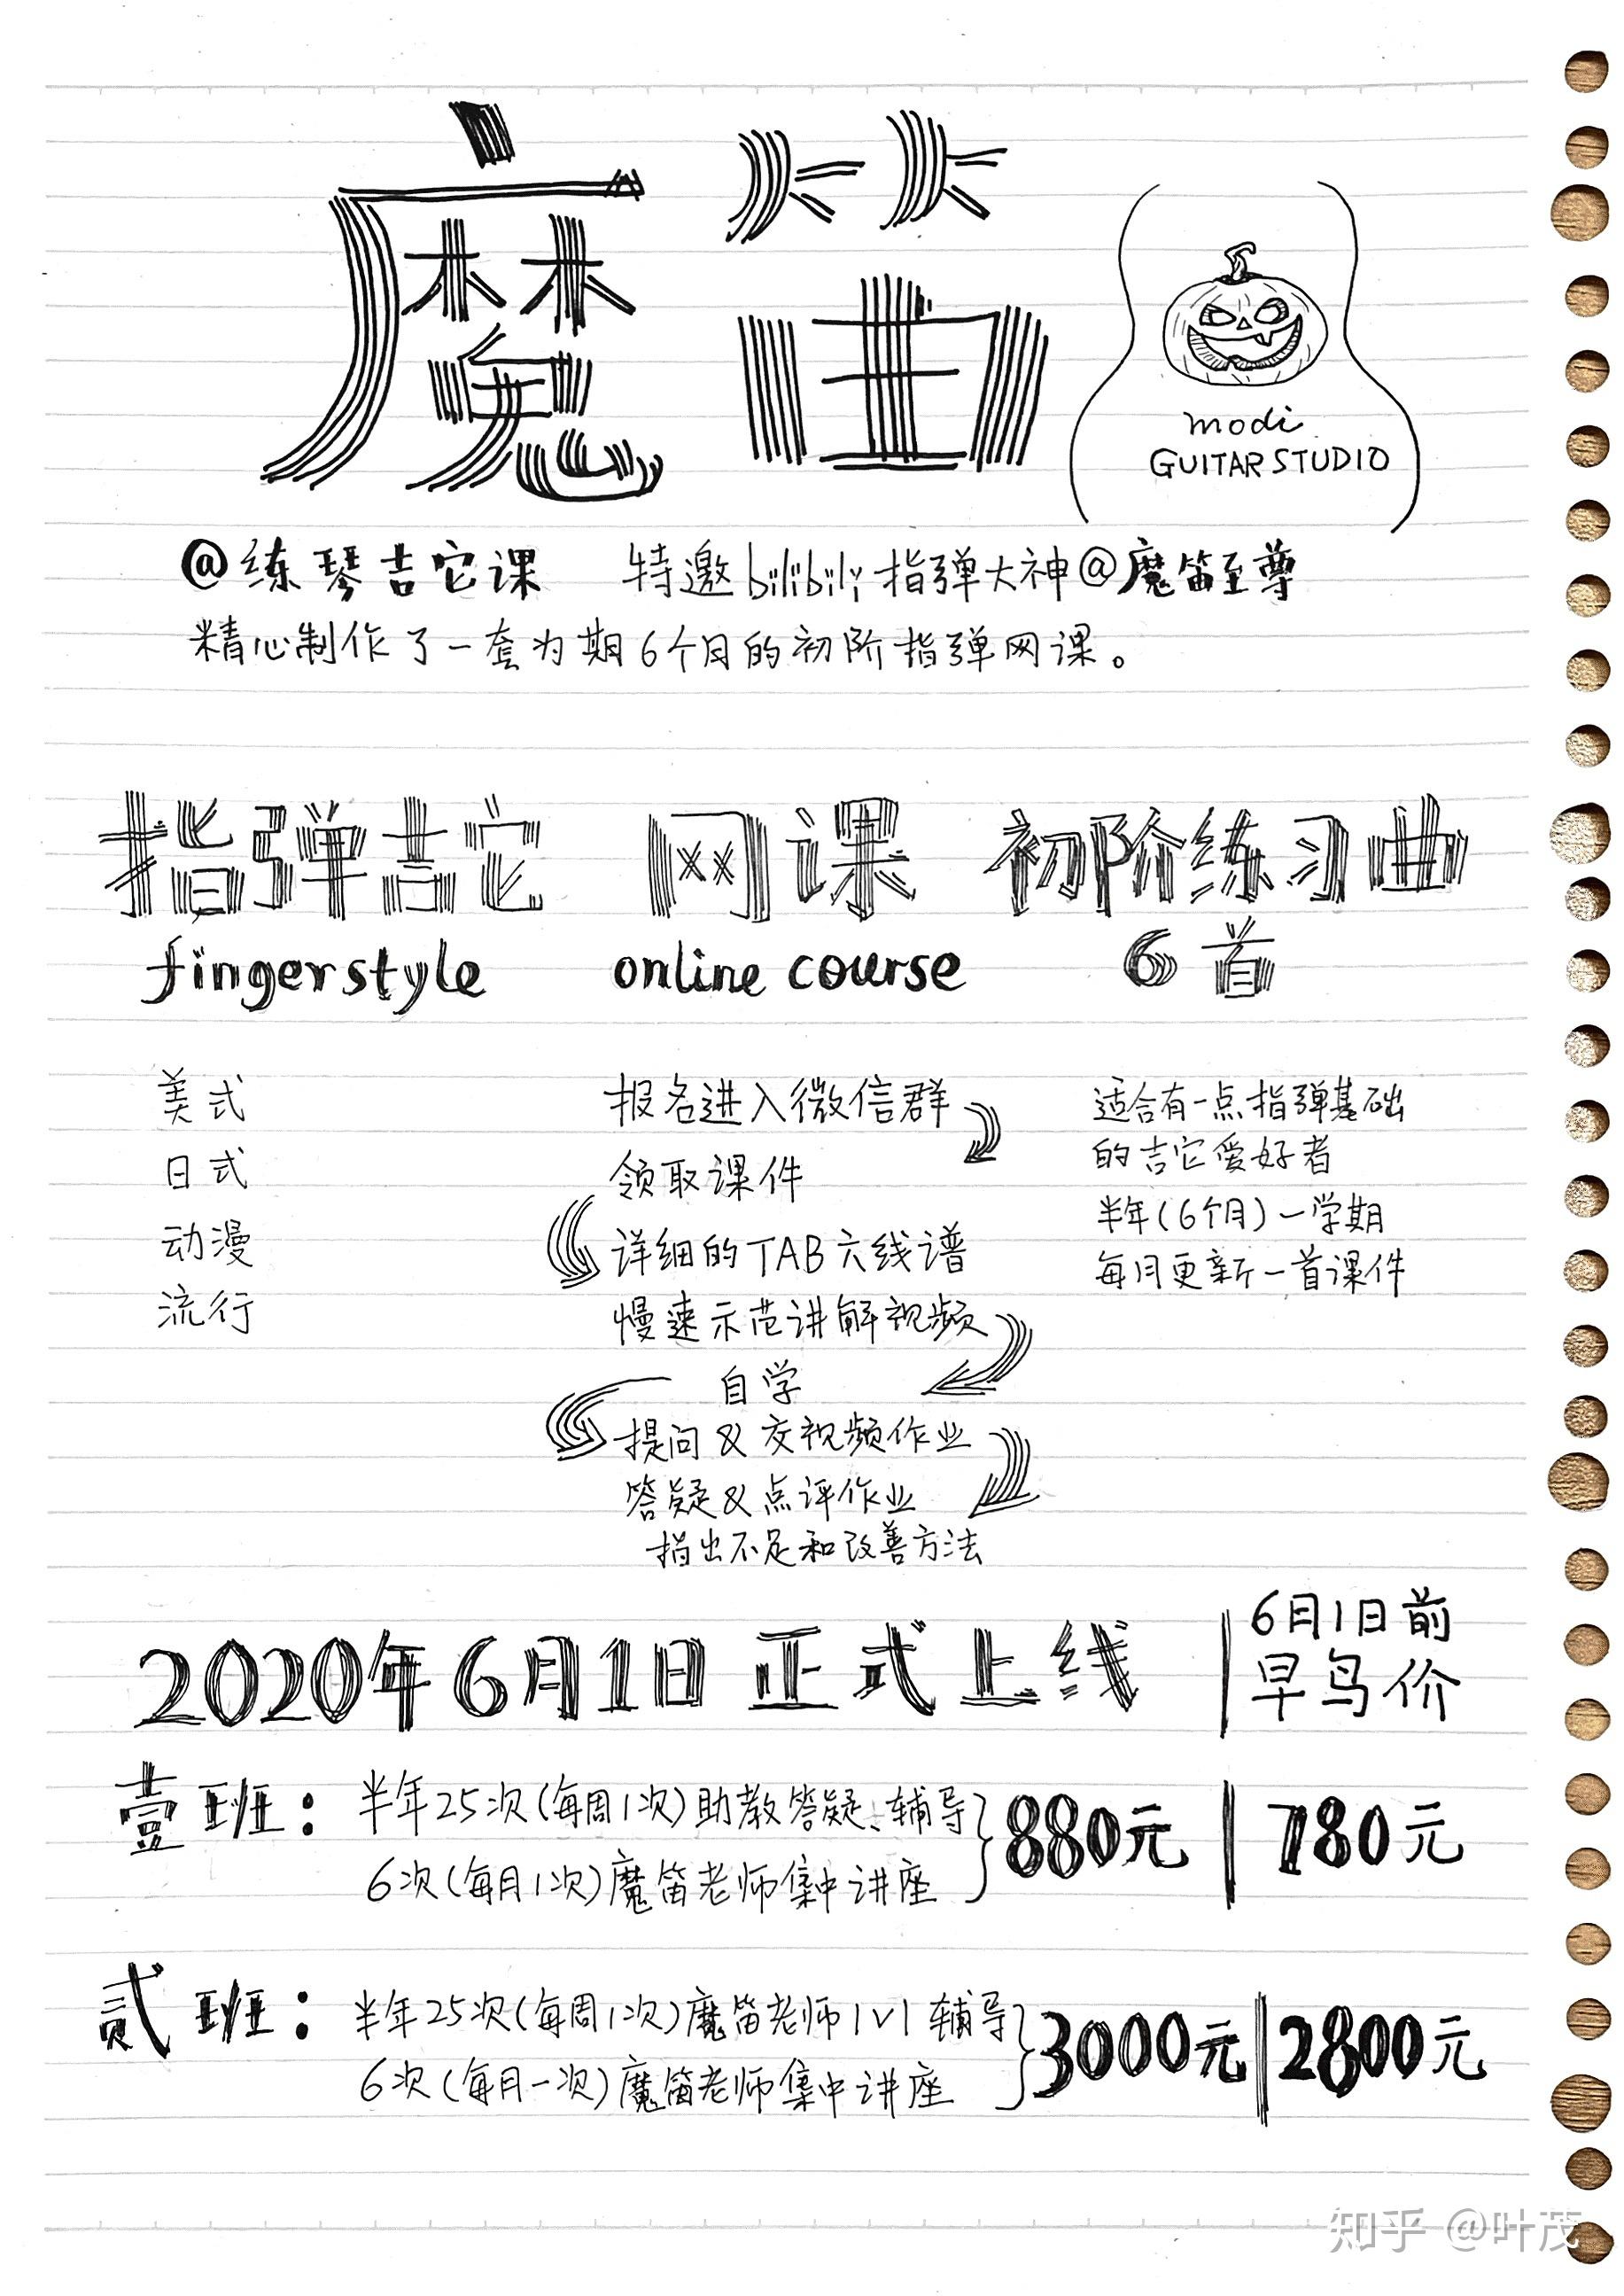 魔笛
modi
GUITAR STUDIO
@练琴吉它课 特邀bilibili指弹大神@魔笛至尊
精心制作了一套为期6个月的初阶指弹网课。
指弹吉它 网课 初阶练习曲
fingerstyle online course 6首
美式
日式
动漫
流行
报名进入微信群
领取课件
详细的TAB六线谱
慢速示范讲解视频
自学
提问&交视频作业
答疑&点评作业
指出不足和改善方法
适合有一点指弹基础
的吉它爱好者
半年(6个月)一学期
每月更新一首课件
2020年6月1日 正式上线
6月1日前
早鸟价
壹班: 半年25次(每周1次)助教答疑、辅导
6次(每月1次)魔笛老师集中讲座
880元 780元
贰班: 半年25次(每周1次)魔笛老师1V1辅导
6次(每月一次)魔笛老师集中讲座
3000元 2800元
知乎 @叶茂